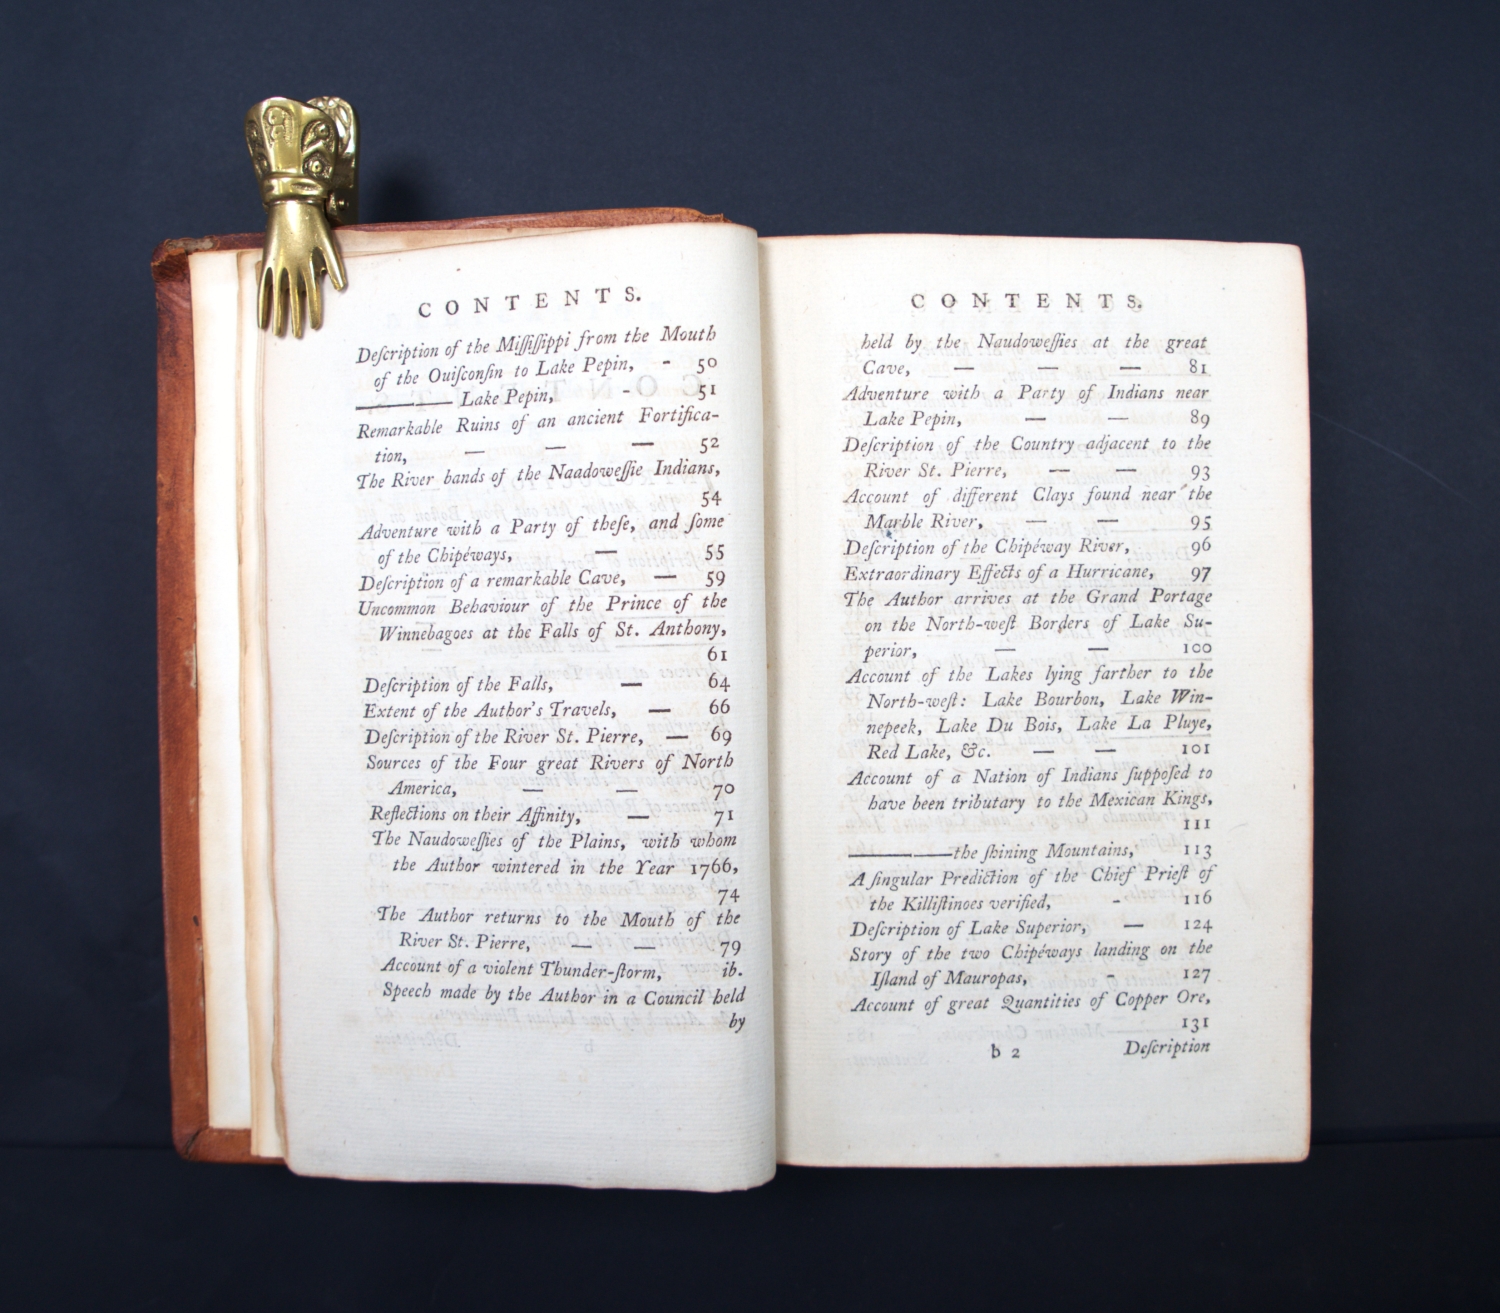 CONTENTS.
Deſcription of the Miſſiſſippi from the Mouth
of the Ouiſconſin to Lake Pepin, - 50
——— Lake Pepin, - 51
Remarkable Ruins of an ancient Fortifica-
tion, — — — 52
The River bands of the Naadoweſſie Indians,
54
Adventure with a Party of theſe, and ſome
of the Chipéways, — 55
Deſcription of a remarkable Cave, — 59
Uncommon Behaviour of the Prince of the
Winnebagoes at the Falls of St. Anthony,
61
Deſcription of the Falls, — 64
Extent of the Author's Travels, — 66
Deſcription of the River St. Pierre, — 69
Sources of the Four great Rivers of North
America, — — 70
Reflections on their Affinity, — 71
The Naudoweſſies of the Plains, with whom
the Author wintered in the Year 1766,
74
The Author returns to the Mouth of the
River St. Pierre, — — 79
Account of a violent Thunder-ſtorm, ib.
Speech made by the Author in a Council held
by
CONTENTS.
held by the Naudoweſſies at the great
Cave, — — — 81
Adventure with a Party of Indians near
Lake Pepin, — — 89
Deſcription of the Country adjacent to the
River St. Pierre, — — 93
Account of different Clays found near the
Marble River, — — 95
Deſcription of the Chipéway River, 96
Extraordinary Effects of a Hurricane, 97
The Author arrives at the Grand Portage
on the North-weſt Borders of Lake Su-
perior, — — 100
Account of the Lakes lying farther to the
North-weſt: Lake Bourbon, Lake Win-
nepeek, Lake Du Bois, Lake La Pluye,
Red Lake, &c. — — 101
Account of a Nation of Indians ſuppoſed to
have been tributary to the Mexican Kings,
111
———the ſhining Mountains, 113
A ſingular Prediction of the Chief Prieſt of
the Killiſtinoes verified, - 116
Deſcription of Lake Superior, — 124
Story of the two Chipéways landing on the
Iſland of Mauropas, - 127
Account of great Quantities of Copper Ore,
131
b 2 Deſcription